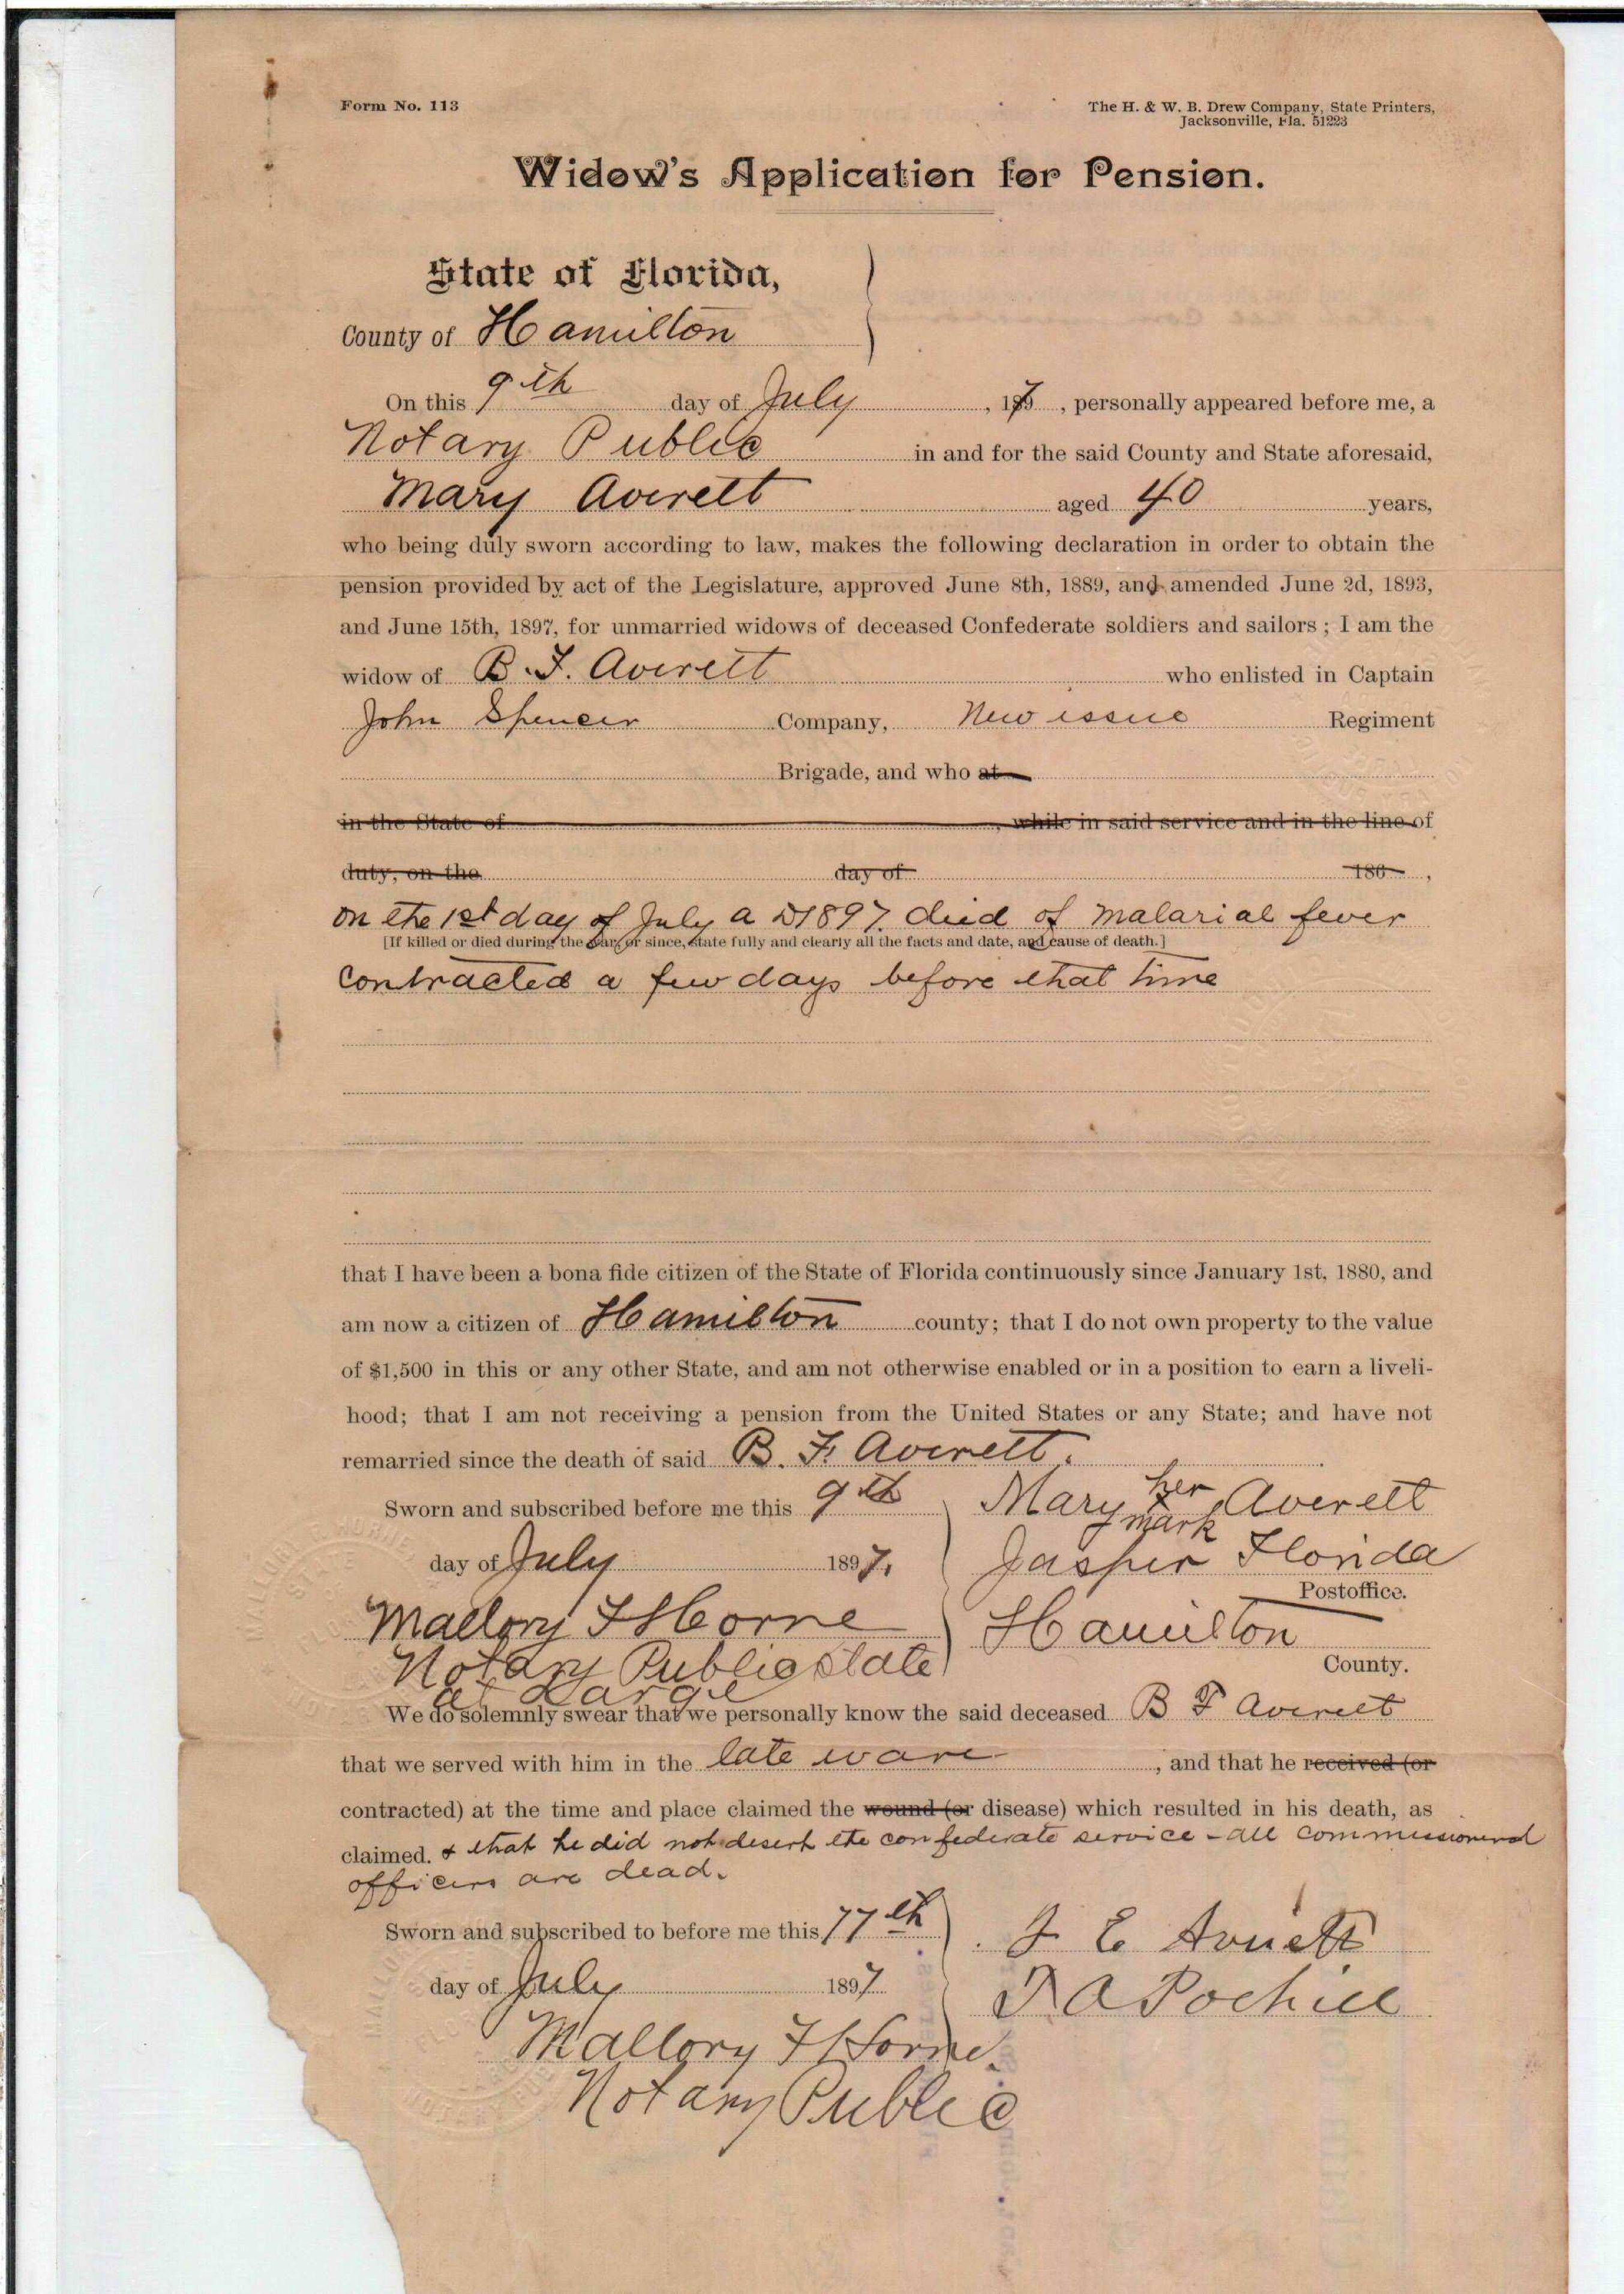 Form No. 113
The H. & W. B. Drew Company, State Printers,
Jacksonville, Fla. 51223
Widow's Application for Pension.
State of Florida,
County of Hamilton
On this 9th day of July, 1897, personally appeared before me, a
Notary Public in and for the said County and State aforesaid,
Mary Averett aged 40 years,
who being duly sworn according to law, makes the following declaration in order to obtain the
pension provided by act of the Legislature, approved June 8th, 1889, and amended June 2d, 1893,
and June 15th, 1897, for unmarried widows of deceased Confederate soldiers and sailors; I am the
widow of B. F. Averett who enlisted in Captain
John Spencer Company, New issue Regiment
Brigade, and who at
in the State of , while in said service and in the line of
duty, on the day of 186 ,
on the 1st day of July A D 1897. died of malarial fever
[If killed or died during the war, or since, state fully and clearly all the facts and date, and cause of death.]
contracted a few days before that time
that I have been a bona fide citizen of the State of Florida continuously since January 1st, 1880, and
am now a citizen of Hamilton county; that I do not own property to the value
of $1,500 in this or any other State, and am not otherwise enabled or in a position to earn a liveli-
hood; that I am not receiving a pension from the United States or any State; and have not
remarried since the death of said B. F. Averett.
Sworn and subscribed before me this 9th Mary her x mark Averett
day of July 1897. Jasper Florida
Postoffice.
Mallory F Horne Hamilton
Notary Public State
County.
at Large
We do solemnly swear that we personally know the said deceased B F Averett
that we served with him in the late ware, and that he received (or
contracted) at the time and place claimed the wound (or disease) which resulted in his death, as
claimed. & that he did not desert the confederate service - all commissioned
officers are dead.
Sworn and subscribed to before me this 17th J E
day of July 1897 A
Mallory F Horne.
Notary Public